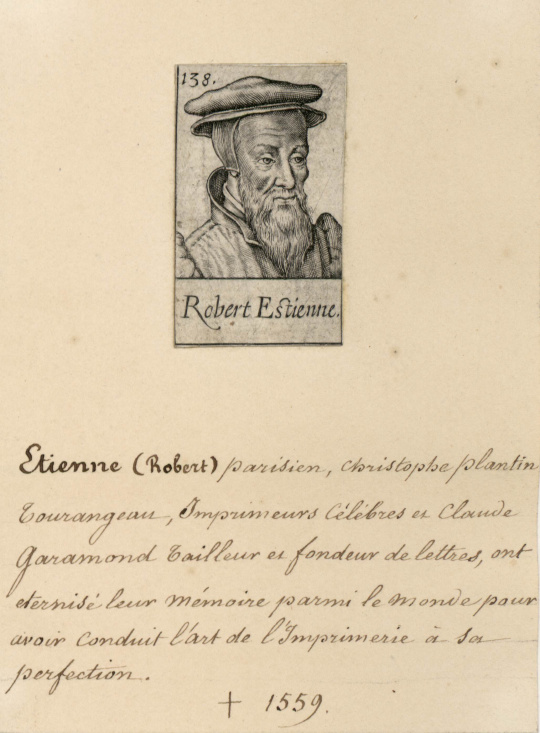 138.
Robert Estienne.
Etienne (Robert) parisien, christophe plantin
Tourangeau, Imprimeurs Célèbres et Claude
Garamond Tailleur et fondeur de lettres, ont
eternisé leur mémoire parmi le monde pour
avoir conduit l'art de l'Imprimerie à sa
perfection.
† 1559.